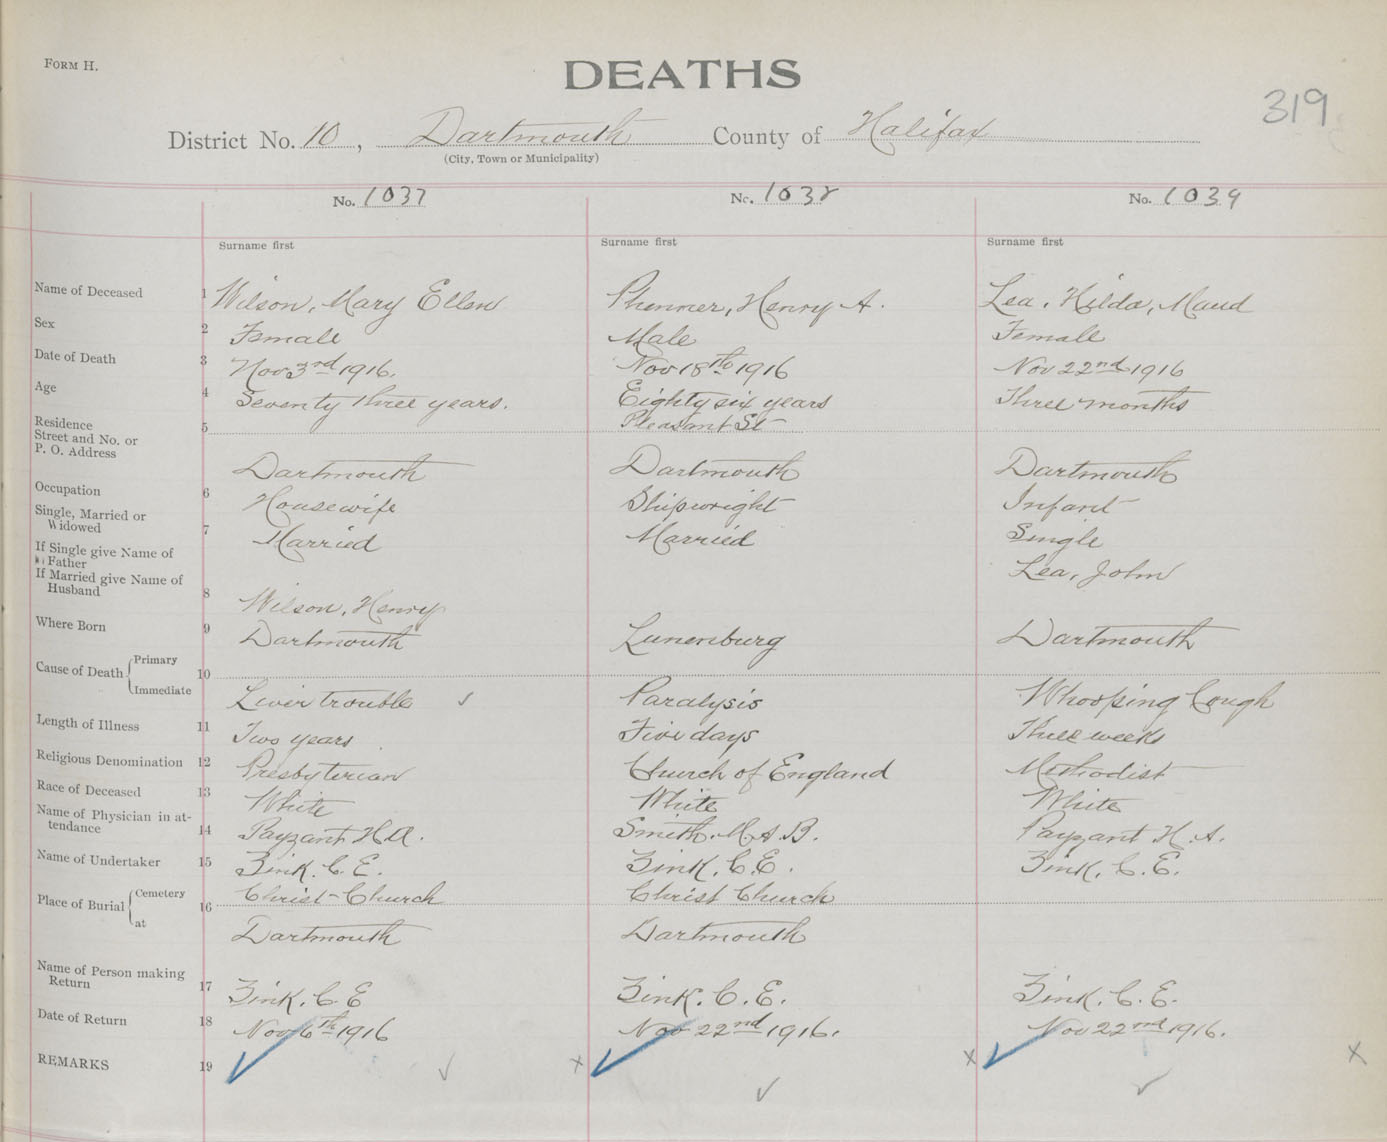 FORM H.
DEATHS
319
District No. 10, Dartmouth County of Halifax
(City, Town or Municipality)
No. 1037 No. 1038 No. 1039
Surname first Surname first Surname first
Name of Deceased 1 Wilson, Mary Ellen Henry A. Lea, Hilda, Maud
Sex 2 Female Male Female
Date of Death 3 Nov 3rd 1916. Nov 18th 1916 Nov 22nd 1916
Age 4 Seventy three years. Eighty six years Three months
Residence 5 Pleasant St
Street and No. or
P. O. Address Dartmouth Dartmouth Dartmouth
Occupation 6 Housewife Shipwright Infant
Single, Married or
Widowed 7 Married Married Single
If Single give Name of
Father Lea, John
If Married give Name of
Husband 8 Wilson, Henry
Where Born 9 Dartmouth Lunenburg Dartmouth
Cause of Death Primary 10
Immediate Liver trouble Paralysis Whooping Cough
Length of Illness 11 Two years Five days Three weeks
Religious Denomination 12 Presbyterian Church of England Methodist
Race of Deceased 13 White White White
Name of Physician in at-
tendance 14 Payzant H.A. Smith. M.A.B. Payzant H.A.
Name of Undertaker 15 Zink. C.E. Zink. C.E. Zink. C.E.
Place of Burial Cemetery 16 Christ-Church Christ Church
at Dartmouth Dartmouth
Name of Person making
Return 17 Zink. C.E Zink. C.E. Zink. C.E.
Date of Return 18 Nov 6th 1916 Nov 22nd 1916. Nov 22nd 1916.
REMARKS 19 x x x